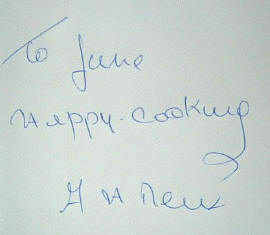 To June
Happy. Cooking